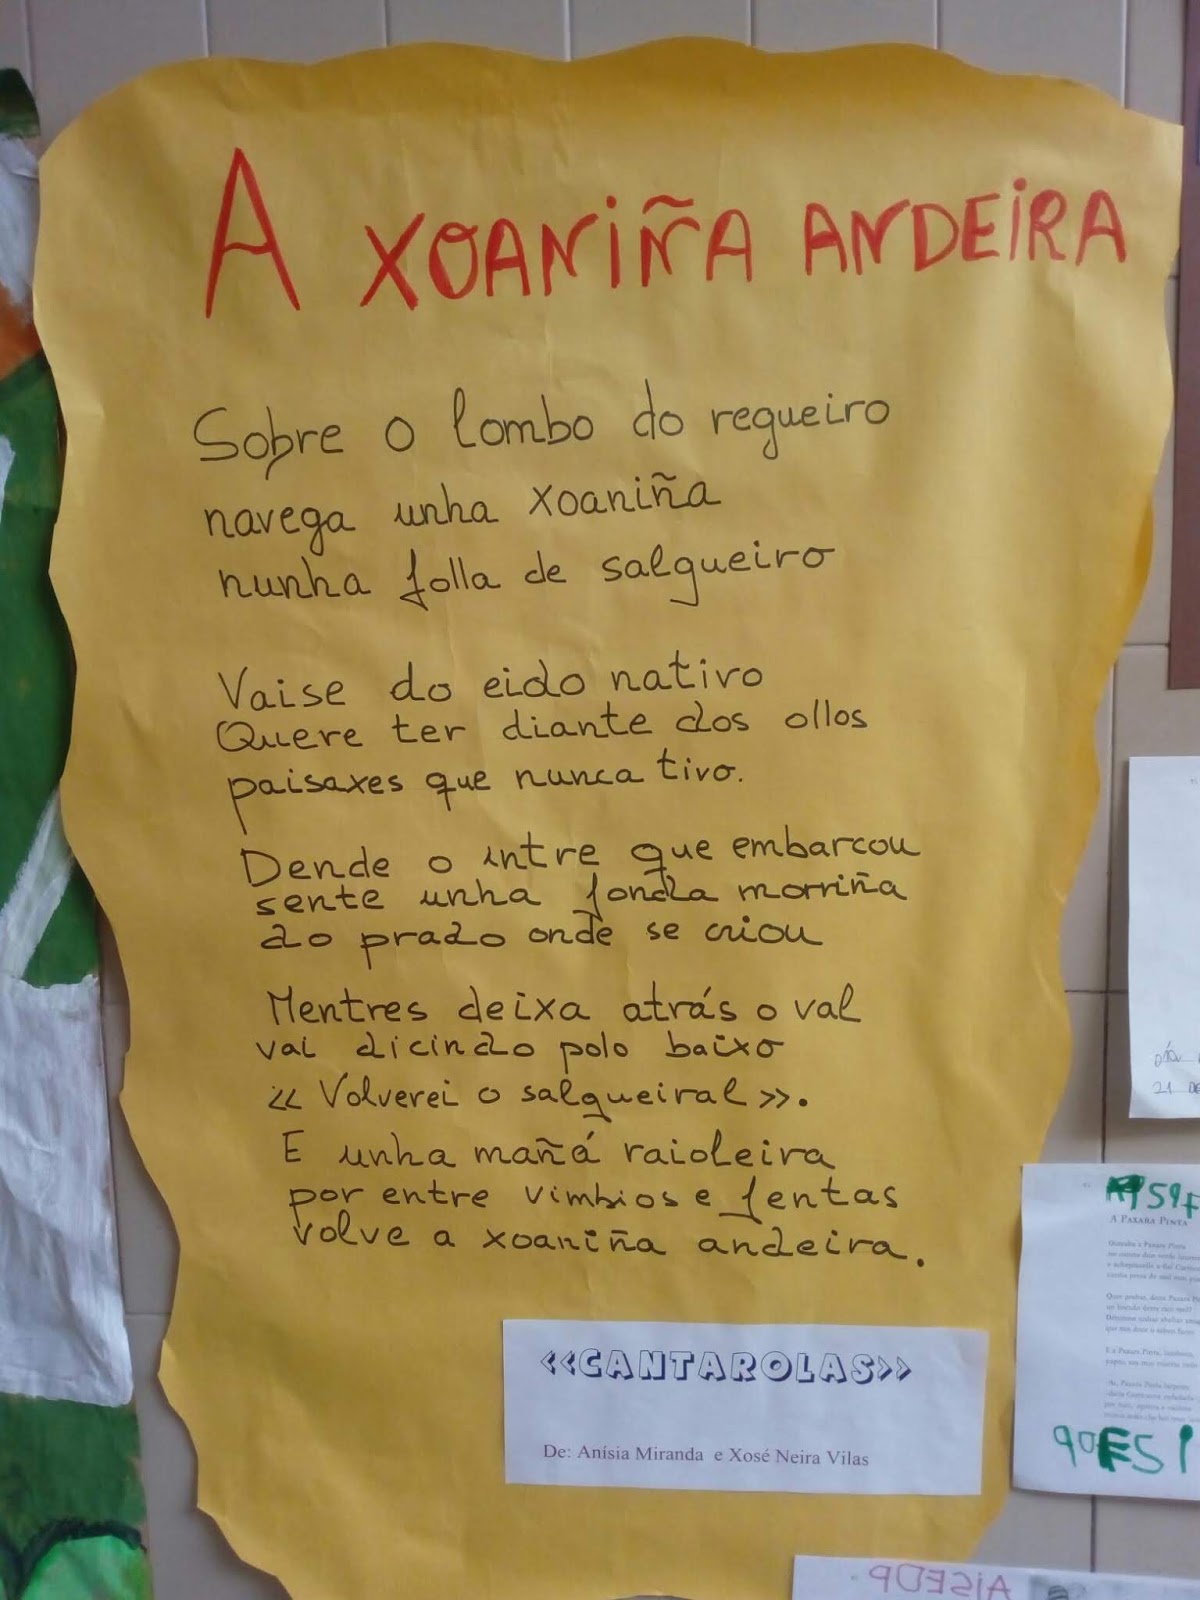 A XOANIÑA ANDEIRA
Sobre o lombo do regueiro
navega unha xoaniña
nunha folla de salgueiro
Vaise do eido nativo
Quere ter diante dos ollos
paisaxes que nunca tivo.
Dende o intre que embarcou
sente unha fonda morriña
do prado onde se criou
Mentres deixa atrás o val
vai dicindo polo baixo
« Volverei o salgueiral ».
E unha mañá raioleira
por entre vimbios e fentas
volve a xoaniña andeira.
«CANTAROLAS»
De: Anísia Miranda e Xosé Neira Vilas
21 DE
A PAXARA PINTA
AISEOP